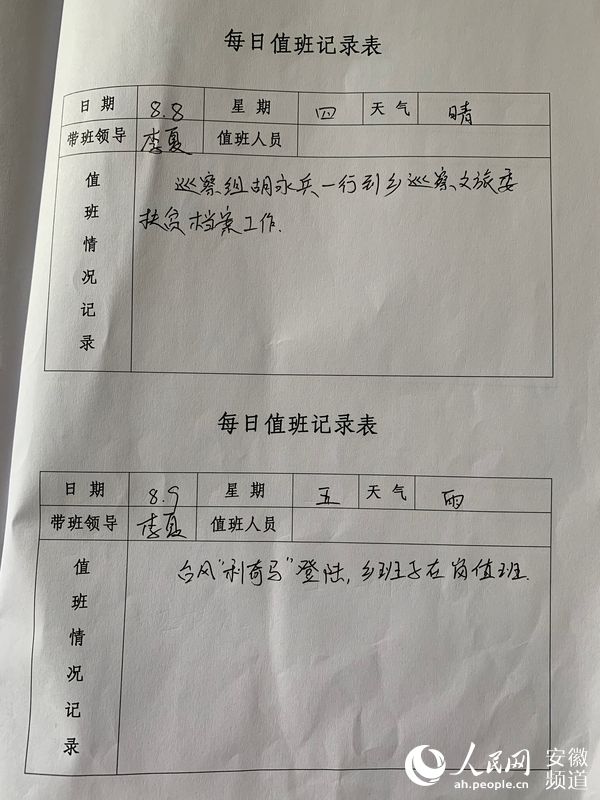 每日值班记录表
日期 8.8 星期 四 天气 晴
带班领导 李夏 值班人员
值班情况记录
巡察组胡永兵一行到乡巡察文旅委
扶贫档案工作.
每日值班记录表
日期 8.9 星期 五 天气 雨
带班领导 李夏 值班人员
值班情况记录
台风“利奇马”登陆,乡班子在岗值班.
人民网 安徽频道
ah.people.cn